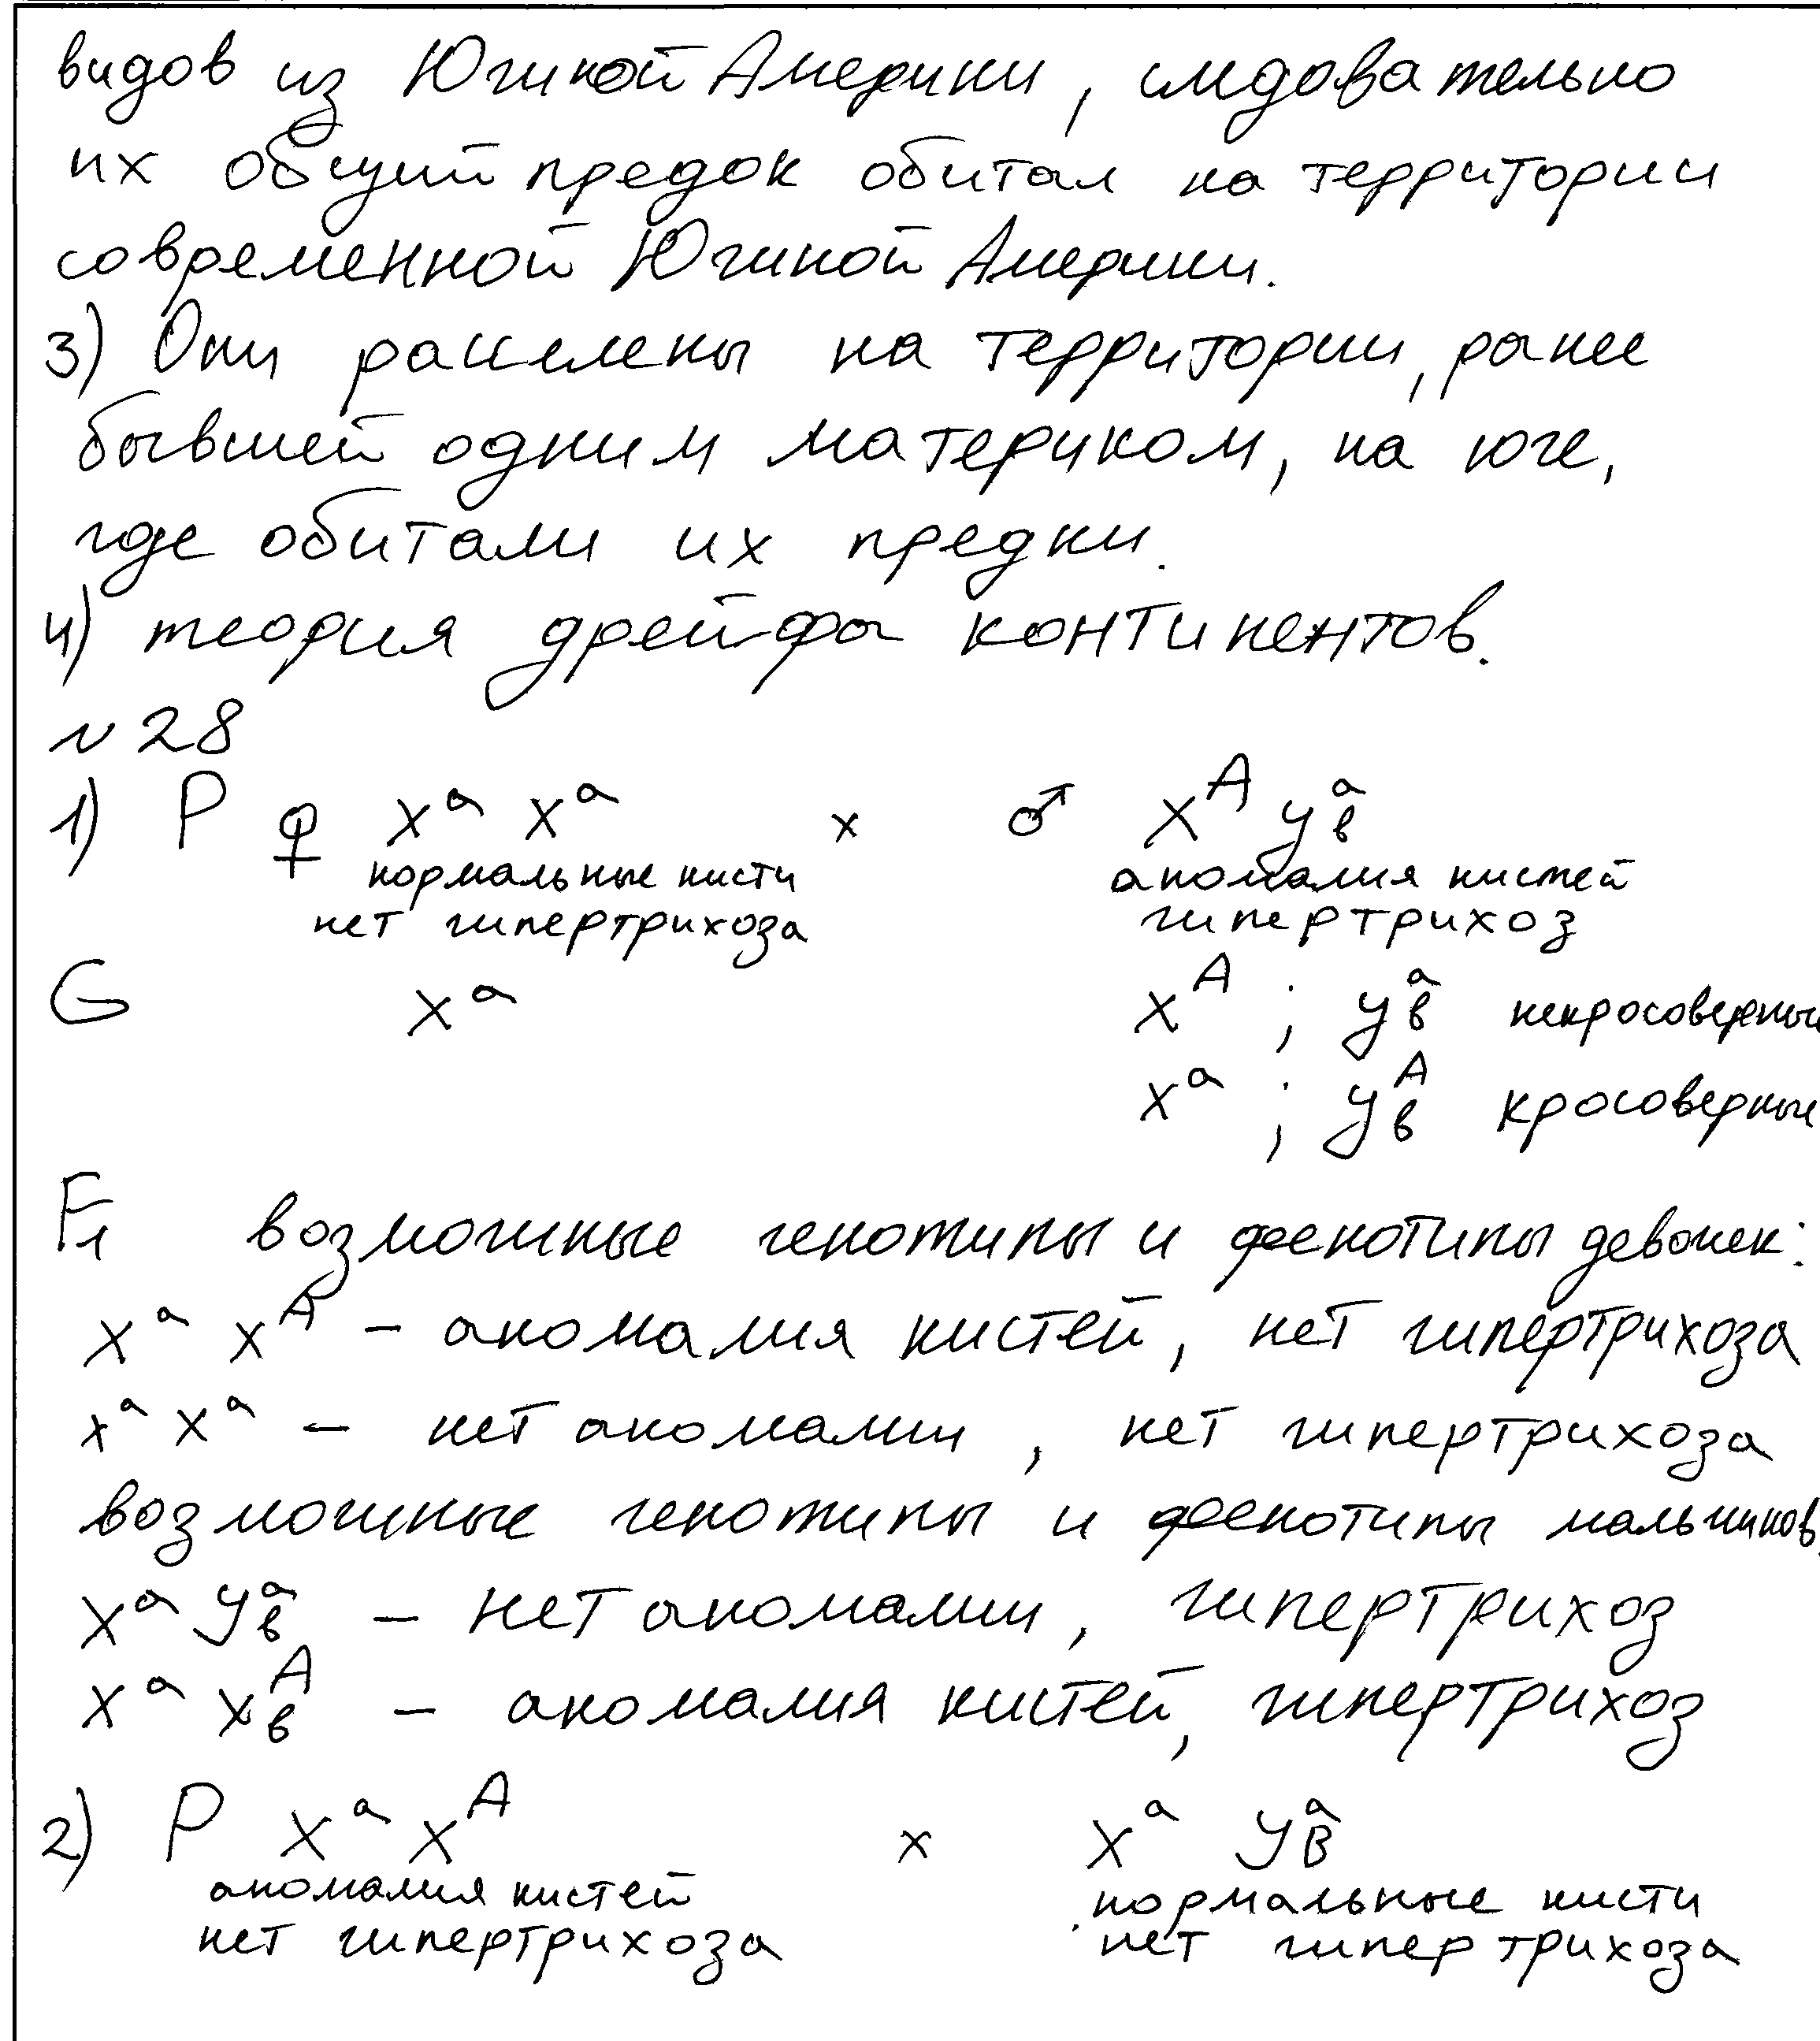 видов из Южной Америки, следовательно
их общий предок обитал на территории
современной Южной Америки.
3) Они расселены на территории, ранее
бывшей одним материком, на юге,
где обитали их предки.
4) теория дрейфа континентов.
N 28
1) P ♀ Xᵃ Xᵃ x ♂ Xᴬ Yᵃв
нормальные кисти аномалия кистей
нет гипертрихоза гипертрихоз
G Xᵃ Xᴬ ; Yᵃв некросоверные
Xᵃ ; Yᴬв кросоверные
F₁ возможные генотипы и фенотипы девочек:
Xᵃ Xᴬ – аномалия кистей, нет гипертрихоза
Xᵃ Xᵃ – нет аномалии, нет гипертрихоза
возможные генотипы и фенотипы мальчиков:
Xᵃ Yᵃв – нет аномалии, гипертрихоз
Xᵃ Xᴬв – аномалия кистей, гипертрихоз
2) P Xᵃ Xᴬ x Xᵃ YᵃВ
аномалия кистей нормальные кисти
нет гипертрихоза нет гипертрихоза